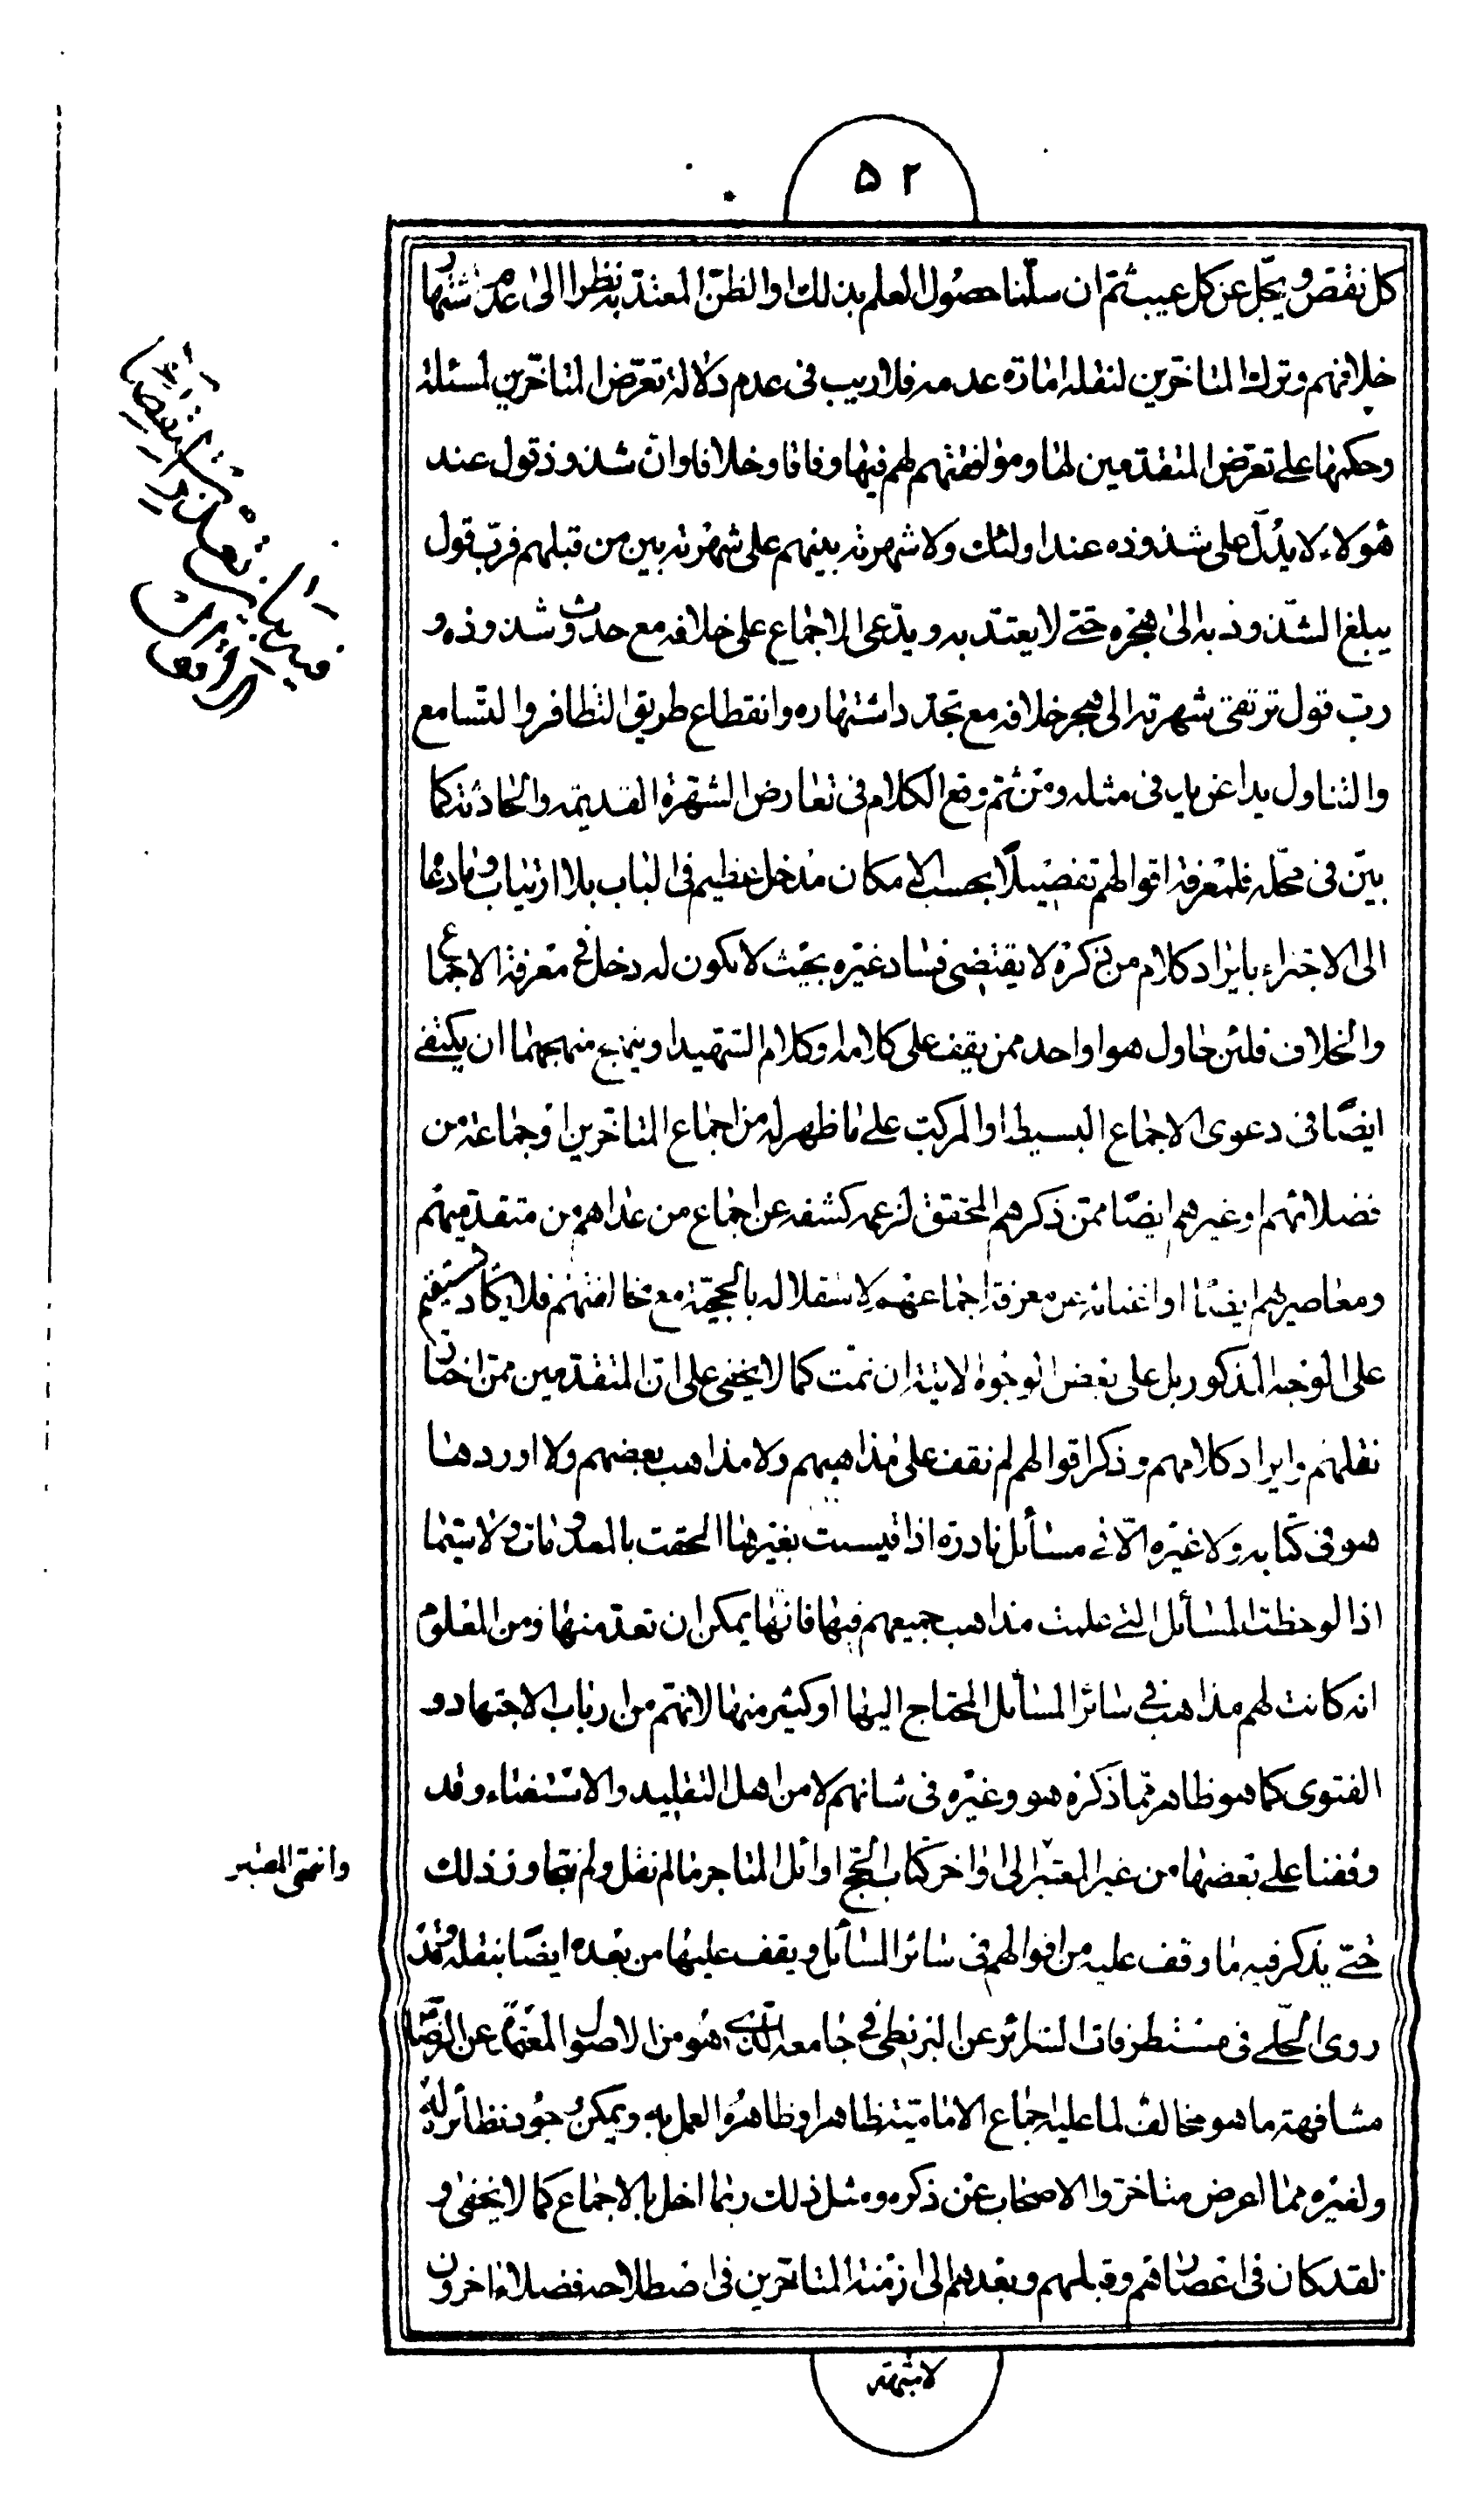 ٥٢
كل نقص ويجل عن كل عيب ثم ان سلمنا حصول العلم بذلك او الظن المعتد به نظرا الى عدم اشتهار
خلافهم وترك المتاخرين لنقله امارة عدمه فلا ريب فى عدم دلالة تعرض المتاخرين لمسئلة
وحكمها على تعرض المتقدمين لها وموافقتهم لهم فيها وفاقا وخلافا وان شذوذ قول عند
هؤلاء لا يدل على شذوذه عند اولئك ولا شهرته بينهم على شهرته بين من قبلهم فرب قول
يبلغ الشذوذ به الى هجره حتى لا يعتد به ويدعى الاجماع على خلافه مع حدوث شذوذه و
رب قول ترتقى شهرته الى هجر خلافه مع تجدد اشتهاره وانقطاع طريق التظافر والتسامع
والتناول يدا عن يد فى مثله ومن ثم وقع الكلام فى تعارض الشهرة القديمة والحادثة كما
بين فى محله فلمعرفة اقوالهم تفصيلا بحسب الامكان مدخل عظيم فى الباب بلا ارتياب وما دعا
الى الاجتزاء بايراد كلام من ذكره لا يقتضى فساد غيره بحيث لا يكون له دخل فى معرفة الاجماع
والخلاف فلئن حاول هو او احد ممن يقف على كلامه او كلام الشهيد او ينهج منهجهما ان يكتفى
ايضا فى دعوى الاجماع البسيط او المركب على ما ظهر له من اجماع المتاخرين او جماعة من
فضلائهم او غيرهم ايضا ممن ذكرهم المحقق لزعمه كشفه عن اجماع من عداهم من متقدميهم
ومعاصيرهم ايضا او اغنائه عن معرفة اجماعهم لاستقلاله بالحجية مع مخالفتهم فلا يكاد يستقيم
على الوجه المذكور بل على بعض الوجوه الاتية ان تمت كما لا يخفى على ان المتقدمين ممن اختار
نقلهم وايراد كلامهم وذكر اقوالهم لم نقف على مذاهبهم ولا مذاهب بعضهم ولا اوردها
هو فى كتابه ولا غيره الا فى مسائل نادرة اذا قيست بغيرها التحقت بالمعدومات ولا سيما
اذا لوحظت المسائل التى علمت مذاهب جميعهم فيها فانها يمكن ان تعد منها ومن المعلوم
انه كانت لهم مذاهب فى سائر المسائل المحتاج اليها او كثير منها لانهم من ارباب الاجتهاد و
الفتوى كما هو ظاهر مما ذكره هو وغيره فى شانهم لا من اهل التقليد والاستفتاء وقد
وقفنا على بعضها من غير المعتبر الى اواخر كتاب الحج اوائل المتاجر مما لم نقل ولم نتجاوز ذلك
وانتهى المعتبر
حتى يذكر فيه ما وقف عليه من اقوالهم فى سائر المسائل ويقف عليها من بعده ايضا بنقله
روى الحلى فى مستطرفات السرائر عن البزنطى فى جامعه الذى هو من الاصول المعتمدة عن الرضا
مشافهة ما هو مخالف لما عليه اجماع الامامية ظاهرا وظاهره العمل به ويمكن وجود نظائر له
ولغيره مما اعرض متاخروا الاصحاب عن ذكره ومثل ذلك ربما اخل بالاجماع كما لا يخفى و
لقد كان فى اعصارهم وقبلهم وبعدهم الى ازمنة المتاخرين فى اصطلاحه فضلاء اخرون
لاشبهة